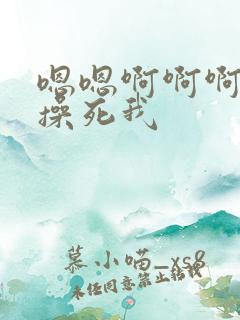 嗯嗯啊啊啊
操死我
慕小喵_xs8
未经同意禁止转载